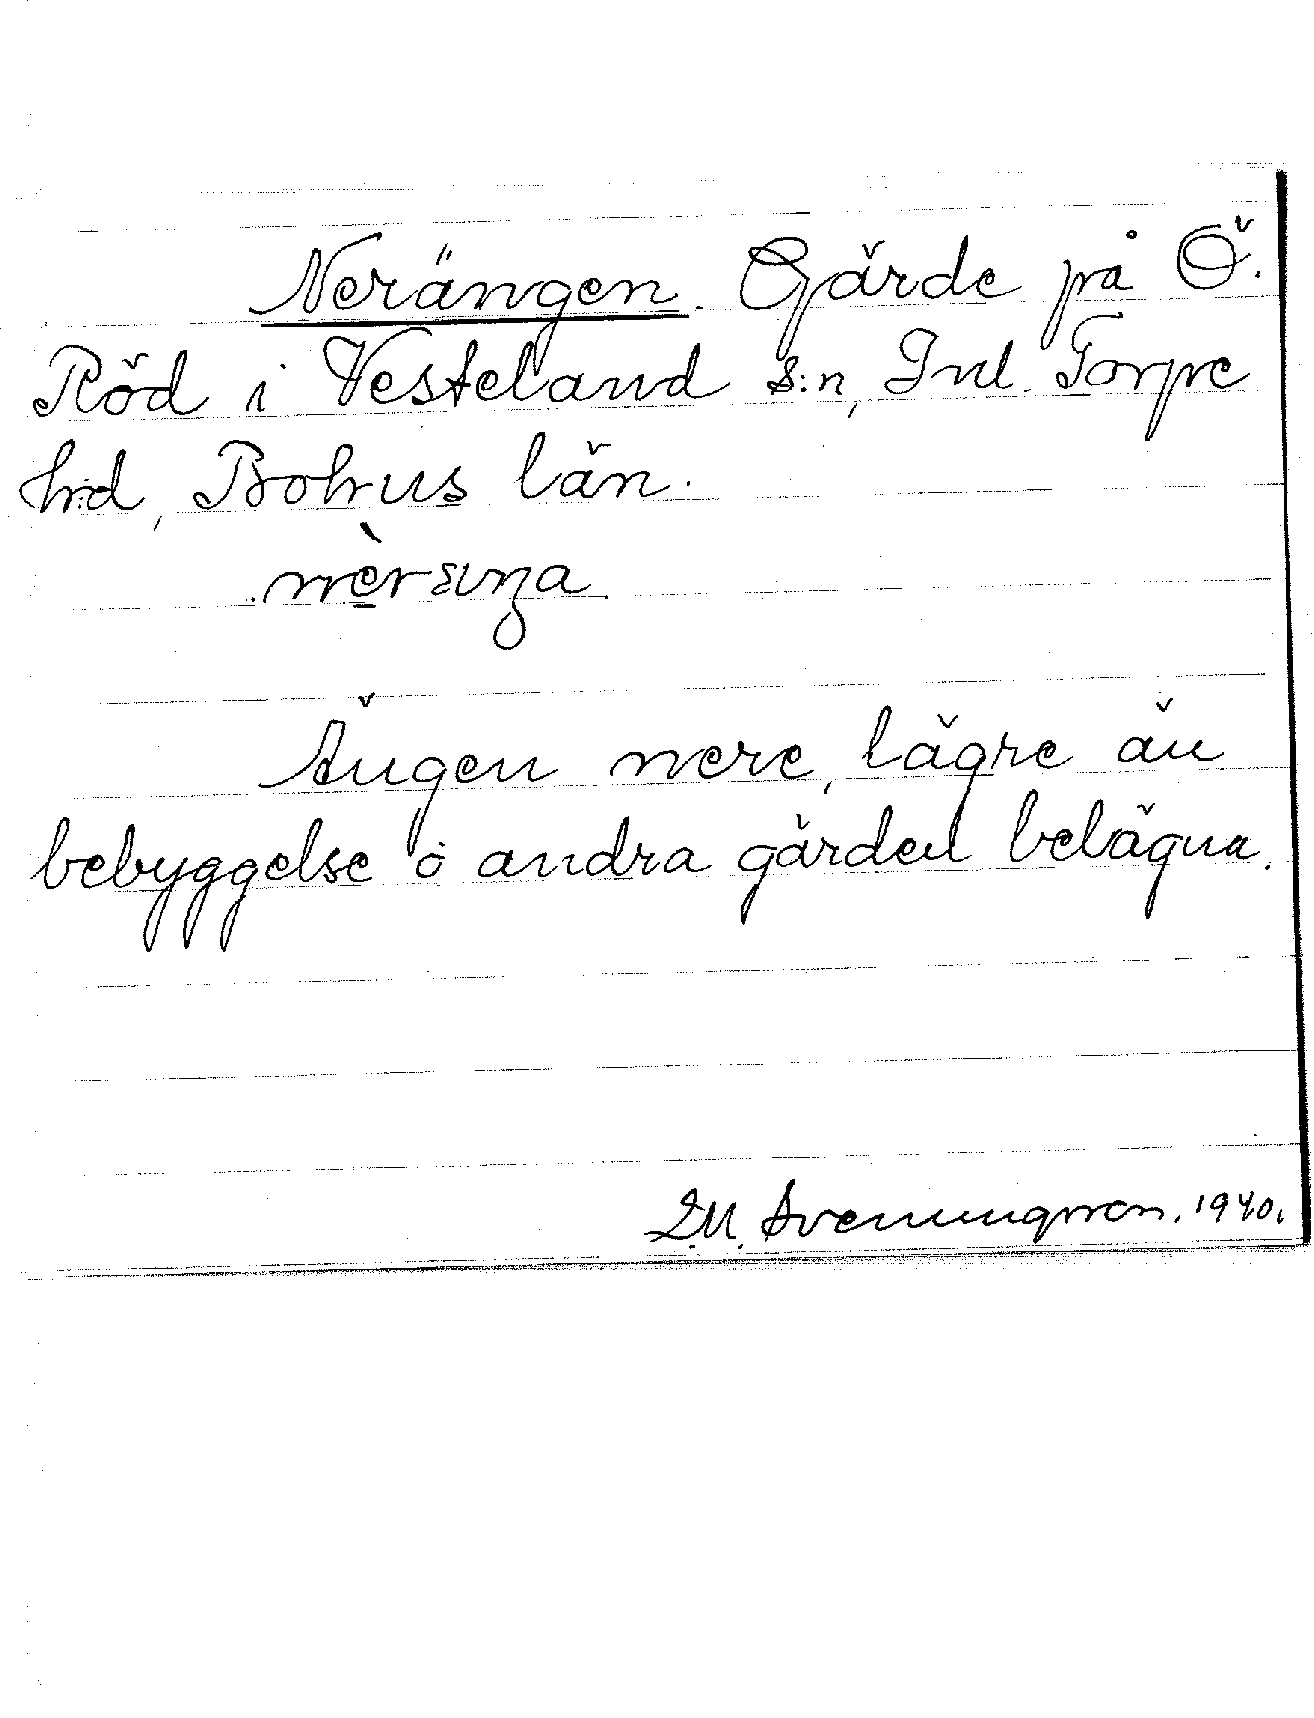 Nerängen. Gärde på Ö.
Röd i Vesteland s:n, Inl. Torpe
hd, Bohus län.
nèräŋa
Ängen nere, lägre än
bebyggelse o andra gärden belägna.
1940.